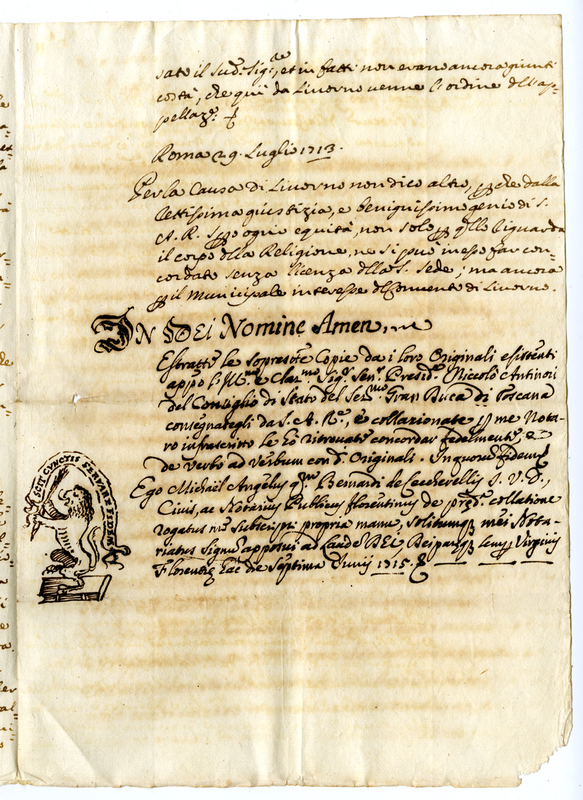 sato il sud.º Sig.re, et in fatti non erano ancora giunti
costà, che qui da Livorno venne l'ordine dell'ap-
pellaz.e
Roma 29. Luglio 1713.
Per la Causa di Livorno non dico altro, che dalla
rettissima giustizia, e benignissimo genio di S.
A. R. ogni equità, non solo riguarda
il corpo della Religione, ne si può in esso far con-
cordato senza licenza della S. Sede; ma ancora
il Municipale interesse del Convento di Livorno.
IN DEI Nomine Amen,
Estratte le soprascte Copie da i loro Originali esistenti
appo l'Ill.mo e Clar.mo Sig.r Sen.r Presid.e Niccolò Antinori
del Consiglio di Stato del Ser.mo Gran Duca di Toscana
consegnategli da S. A. R.e, e collazionate p me Nota-
ro infrascritto le hò ritrovate concordar fedelmente, e
de verbo ad verbum con d.i Originali. In quorum fidem
Ego Michäel Angelus qm Bernardi de J. V. D.,
Civis, ac Notarius Publicus florentinus de pred.a collatione
rogatus me subscripsi propria manu, solitumq mei Nota-
riatus Signum apposui ad Laudem DEI Deiparæq semp Virginis
Florentiæ hac die Septima Junij 1715.
SOLI CUNCTIS SERVARE FIDEM